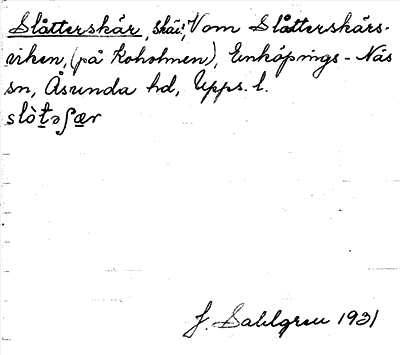 Slåtterskär, skär, V om Slåtterskärs-
viken, (på Koholmen), Enköpings-Näs
sn, Åsunda hd, Upps. l.
slò̀təʃær
J. Sahlgren 1931